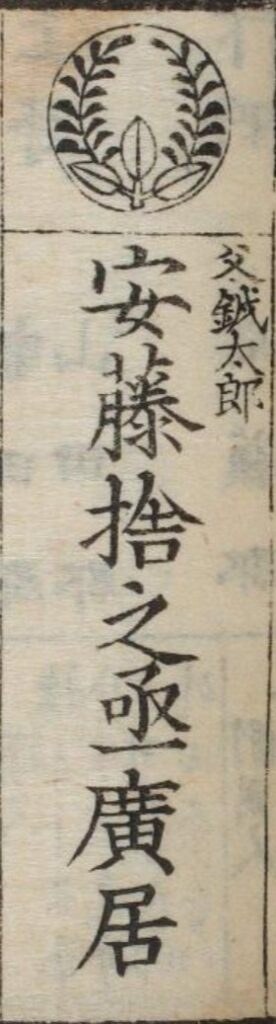 父鉞太郎
安藤捨之亟廣居